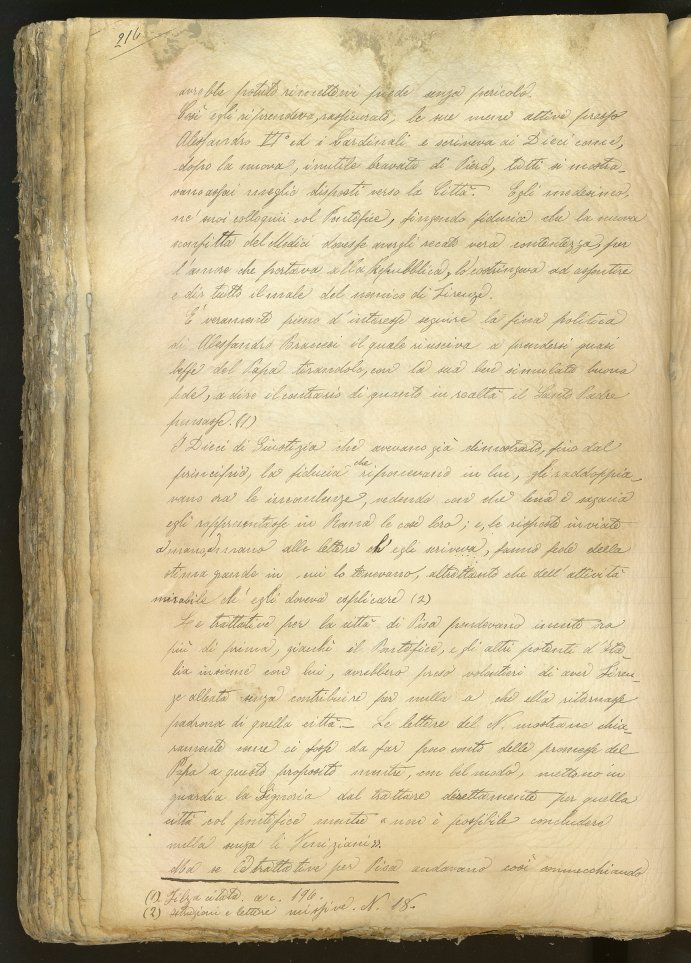 216
avrebbe potuto rimettervi piede senza pericolo.
Così egli riprendeva, rassicurato, le sue mene attive presso
Alessandro VI° ed i Cardinali e scriveva ai Dieci come,
dopo la nuova, inutile bravata di Piero, tutti si mostra-
vano assai meglio disposti verso la Città. Egli medesimo,
ne' suoi colloqui col Pontefice, fingendo fiducia che la nuova
sconfitta del Medici dovesse avergli recato vera contentezza, per
l'amore che portava alla Repubblica, lo costringeva ad assentire
e dir tutto il male del nemico di Firenze.
E' veramente pieno d'interesse seguire la fina politica
di Alessandro Braccesi il quale riusciva a prendersi quasi
beffe del Papa tirandolo, con la sua ben simulata buona
fede, a dire il contrario di quanto in realtà il Santo Padre
pensasse. (1)
I Dieci di Giustizia che avevano già dimostrato, fino dal
principio, la fiducia che riponevano in lui, gli raddoppia-
vano ora le incombenze, vedendo con che lena e sagacia
egli rappresentasse in Roma le cose loro; e, le risposte inviate
a mano a mano alle lettere ch'egli scriveva, fanno fede della
stima grande in cui lo tenevano, altrettanto che dell'attività
mirabile ch'egli doveva esplicare (2)
Le trattative per la città di Pisa pendevano incerte ora
più di prima, giacchè il Pontefice, e gli altri potenti d'Ita-
lia insieme con lui, avrebbero preso volentieri di aver Firen-
ze alleata senza contribuire per nulla a che ella ritornasse
padrona di quella città. — Le lettere del N. mostrano chia-
ramente come ci fosse da far poco conto delle promesse del
Papa a questo proposito mentre, con bel modo, mettono in
guardia la Signoria dal trattare direttamente per quella
città col pontefice mentre « non è possibile concludere
nulla senza li Veniziani».
Ma se le trattative per Pisa andavano così
(1) Filza citata. a c. 196.
(2) Istruzioni e lettere missive. N. 18.